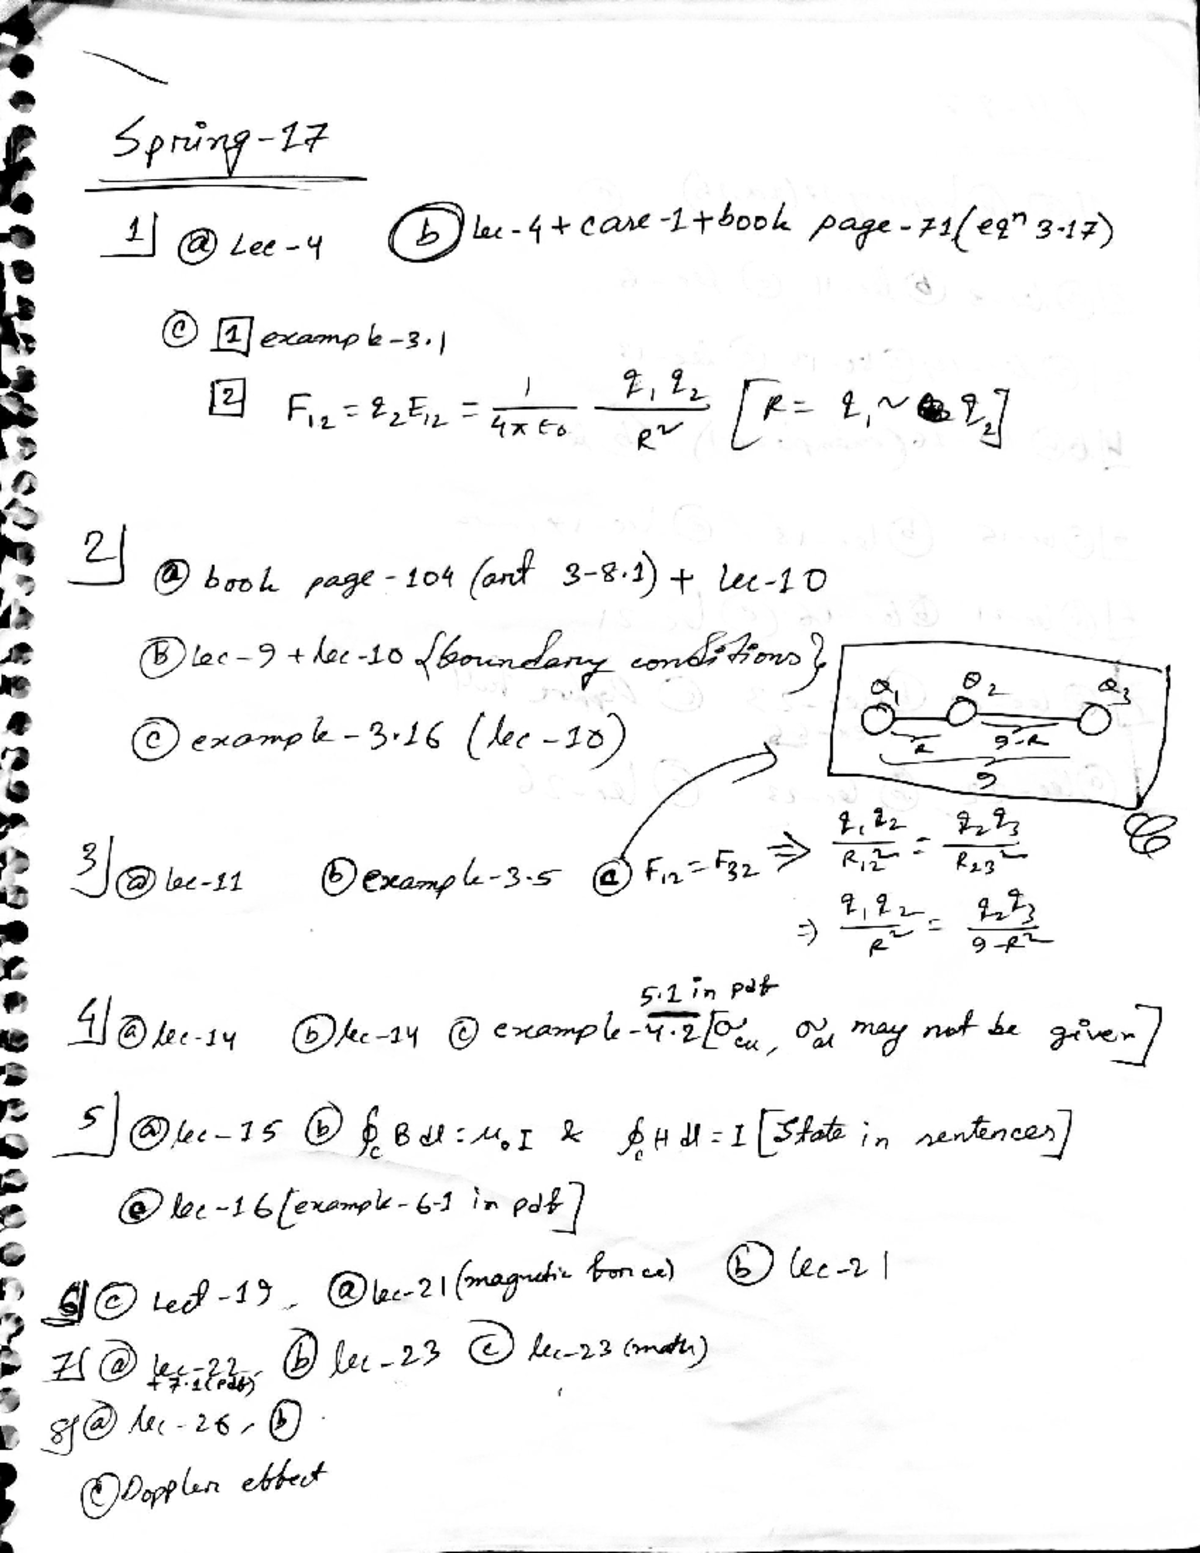 Spring-17
1] (a) Lec-4 (b) lec-4 + case-1 + book page-71 (eqn 3-17)
(c) [1] example-3.1
[2] F₁₂ = q₂E₁₂ = 1/4πε₀ q₁q₂/R² [R = q₁ ~ q₂]
2] (a) book page-104 (art 3-8.1) + lec-10
(B) lec-9 + lec-10 {boundary conditions}
(c) example-3.16 (lec-10)
Q₁ Q₂ Q₃
R 9-R
9
3] (a) lec-11 (b) example-3-5 (c) F₁₂ = F₃₂ ⇒ q₁q₂/R₁₂² = q₂q₃/R₂₃²
⇒ q₁q₂/R² = q₂q₃/9-R²
5.1 in pdf
4] (a) lec-14 (b) lec-14 (c) example-4.2 [σcu, σal may not be given]
5] (a) lec-15 (b) ∮c B dl = μ₀I & ∮c H dl = I [State in sentences]
(c) lec-16 [example-6-1 in pdf]
6] (c) Lect-19, (a) lec-21 (magnetic force) (b) lec-21
7] (a) lec-22 + 7.1 (pdf) (b) lec-23 (c) lec-23 (math)
8] (a) lec-26, (b)
(c) Doppler effect